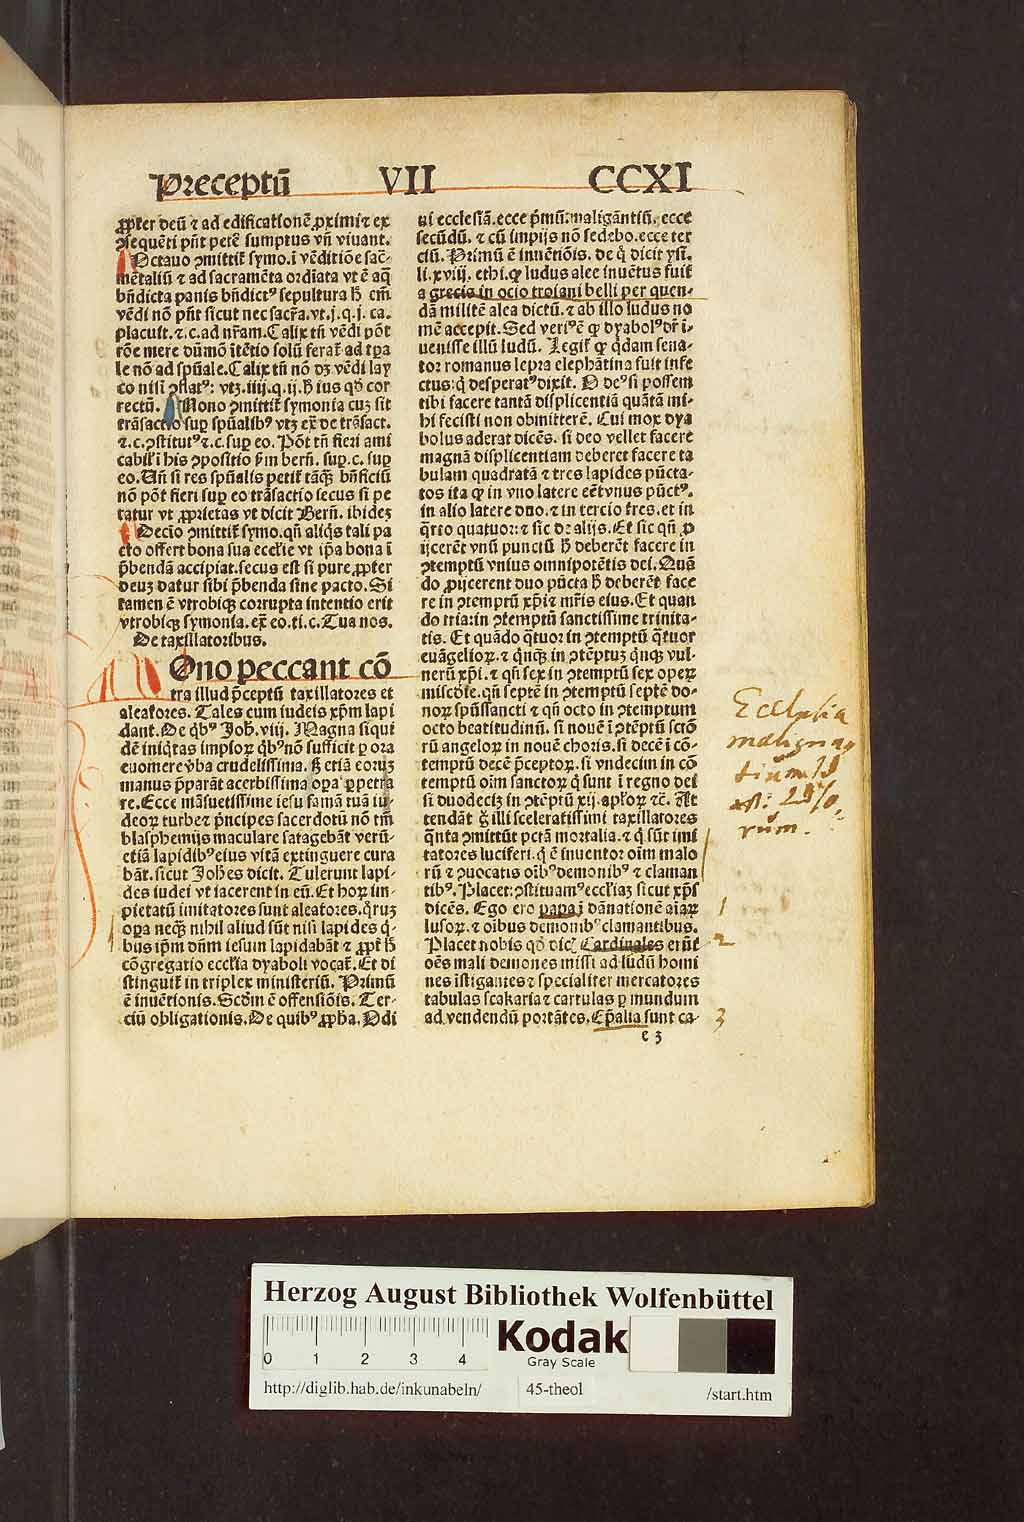 Preceptū VII CCXI
ꝓpter deū ⁊ ad edificationē ꝓximi ⁊ ex
ꝯsequēti pn̄t petē sumptus vn̄ viuant.
Octauo ꝯmittit᷑ symo. ī vēditiōe sac̄-
mētaliū ⁊ ad sacramēta ordīata vt ē aq̄
bn̄dicta panis bn̄dictꝰ sepultura hꝫ cm̄
vēdi nō pn̄t sicut nec sacr̄a. vt. j. q. j. ca.
placuit. ⁊. c. ad nr̄am. Calix tn̄ vēdi pōt
rōe mere dūmō ītētio solū ferat᷑ ad tpa
le nō ad spūale. Calix tn̄ nō dꝫ vēdi lay
co nisi ꝯflatꝰ: vtꝫ. iiij. q. ij. hꝫ ius qd̓ cor
rectū. Nono ꝯmittit᷑ symonia cuꝫ fit
trāsactio suꝑ spūalibꝰ vtꝫ ex̄ de trāsact.
⁊. c. ꝯstitutꝰ ⁊. c. suꝑ eo. Pōt tn̄ fieri ami
cabil̓r ī his ꝯpositio ẜm bern̄. suꝑ. c. suꝑ
eo. Un̄ si res spūalis petit᷑ tāꝙ bn̄ficiū
nō pōt fieri suꝑ eo trāsactio secus si pe
tatur vt ꝓprietas vt dicit Bern̄. ibideꝫ
Decīo ꝯmittit᷑ symo. qn̄ aliq̄s tali pa
cto offert bona sua eccl̓ie vt ip̄a bona ī
p̄bendā accipiat. secus est si pure ꝓpter
deuꝫ datur sibi p̄benda sine pacto. Si
tamen ē vtrobiqꝫ corrupta intentio erit
vtrobiqꝫ symonia. ex̄ eo. ti. c. Tua nos.
De taxillatoribus.
Nono peccant cō
tra illud p̄ceptū taxillatores et
aleatores. Tales cum iudeis xp̄m lapi
dant. De qb̓ꝰ Joh̄. viij. Magna siqui
dē iniq̄tas impioꝝ qb̓ꝰ nō sufficit ꝑ ora
euomere v̓ba crudelissima. ß etiā eoruꝫ
manus p̄parāt acerbissima opa ꝑpetra
re. Ecce māsuetissime iesu famā tuā iu-
deoꝝ turbe ⁊ p̄ncipes sacerdotū nō tm̄
blasphemijs maculare satagebāt verū-
etiā lapidibꝰ eius vitā extinguere cura
bāt. sicut Joh̄es dicit. Tulerunt lapi-
des iudei vt iacerent in eū. Et hoꝝ im-
pietatū imitatores sunt aleatores. q̄ruꝫ
opa neqꝫ nihil aliud sūt nisi lapides q̓-
bus ip̄m dn̄m iesum lapidabāt ⁊ ꝓpt̓ hꝫ
cōgregatio eccl̓ia dyaboli vocat᷑. Et di
stinguit᷑ in triplex ministeriū. Primū
ē inuētionis. Scd̓m ē offensiōis. Ter-
ciū obligationis. De quibꝰ ꝓph̄a. Odi
ui ecclesiā. ecce p̄mū: maligātiū. ecce
secūdū. ⁊ cū impijs nō sedebo. ecce ter
ciū. Primū ē inuētiōis. de q̄ dicit ysi.
li. xviij. ethi. ꝙ ludus alee inuētus fuit
a grecis in ocio troiani belli per quen-
dā militē alea dictū. ⁊ ab illo ludus no
mē accepit. Sed veriꝰ ē ꝙ dyabolꝰ dr̄ ī-
uenisse illū ludū. Legit᷑ ꝙ q̓dam sena-
tor romanus lepra elephātina fuit infe
ctus: q̓ desperatꝰ dixit. O deꝰ si possem
tibi facere tantā displicentiā quātā mi-
hi fecisti non obmitterē. Cui mox dya
bolus aderat dicēs. si deo vellet facere
magnā displicentiam deberet facere ta
bulam quadratā ⁊ tres lapides pūcta-
tos ita ꝙ in vno latere eēt vnus pūctꝰ.
in alio latere duo. ⁊ in tercio tres. et in
q̄rto quatuor: ⁊ sic de alijs. Et sic qn̄ ꝓ
ijcerēt vnū punctū hꝫ deberēt facere in
ꝯtemptū vnius omnipotētis dei. Quā
do ꝓijcerent duo pūcta hꝫ deberēt face
re in ꝯtemptū xp̄i ⁊ mr̄is eius. Et quan
do tria: in ꝯtemptū sanctissime trinita-
tis. Et quādo q̄tuor in ꝯtemptū q̄tuor
euāgelioꝝ. ⁊ q̓nqꝫ in ꝯtēptuꝫ q̓nqꝫ vul-
nerū xp̄i. ⁊ qn̄ sex in ꝯtemptū sex opeꝝ
mīscd̓ie. qn̄ septē in ꝯtemptū septē do-
noꝝ spūssancti ⁊ qn̄ octo in ꝯtemptum
octo beatitudinū. si nouē ī ꝯtēptū sctō
rū angeloꝝ in nouē choris. si decē ī cō-
temptū decē p̄ceptoꝝ. si vndecim in cō
temptū oīm sanctoꝝ q̓ sunt ī regno dei
si duodeciꝫ in ꝯtēptū xij. apl̓oꝝ ⁊c̄. At
tendāt g̊ illi sceleratissimi taxillatores
q̄nta ꝯmittūt pctā mortalia. ⁊ q̓ sūt imi
tatores luciferi. q̓ ē inuentor oīm malo
rū ⁊ ꝓuocatis oībꝰ demonibꝰ ⁊ claman
tibꝰ. Placet: ꝯstituamꝰ eccl̓iaꝫ sicut xp̄s
dicēs. Ego ero papa ī dānationē aīaꝝ
lusoꝝ. ⁊ oībus demonibꝰ clamantibus.
Placet nobis qd̓ dic̄. Cardinales erūt
oēs mali demones missi ad ludū homi
nes īstigantes ⁊ specialiter mercatores
tabulas scakaria ⁊ cartulas ꝑ mundum
ad vendendū portātes. Ep̄alia sunt ca-
e 3
Ecclesia
malignan
tium
rum.
1
2
3
Herzog August Bibliothek Wolfenbüttel
0 1 2 3 4
Kodak
Gray Scale
http://diglib.hab.de/inkunabeln/ 45-theol /start.htm